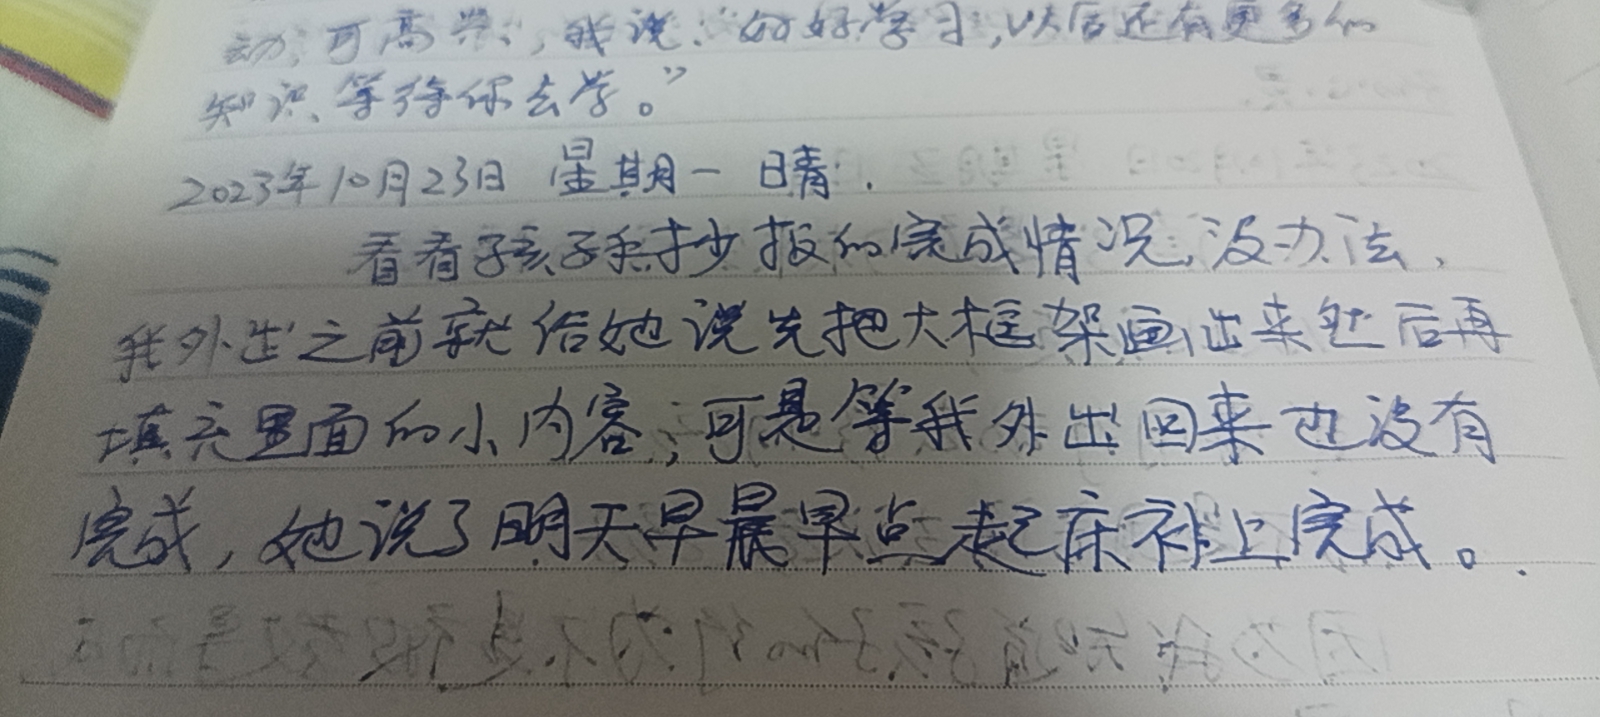 动,可高兴,我说:“好好学习,以后还有更多的
知识等待你去学。”
2023年10月23日 星期一 晴.
看看孩子手抄报的完成情况,没办法,
我外出之前就给她说先把大框架画出来然后再
填充里面的小内容,可是等我外出回来也没有
完成,她说了明天早晨早点起床补上完成。